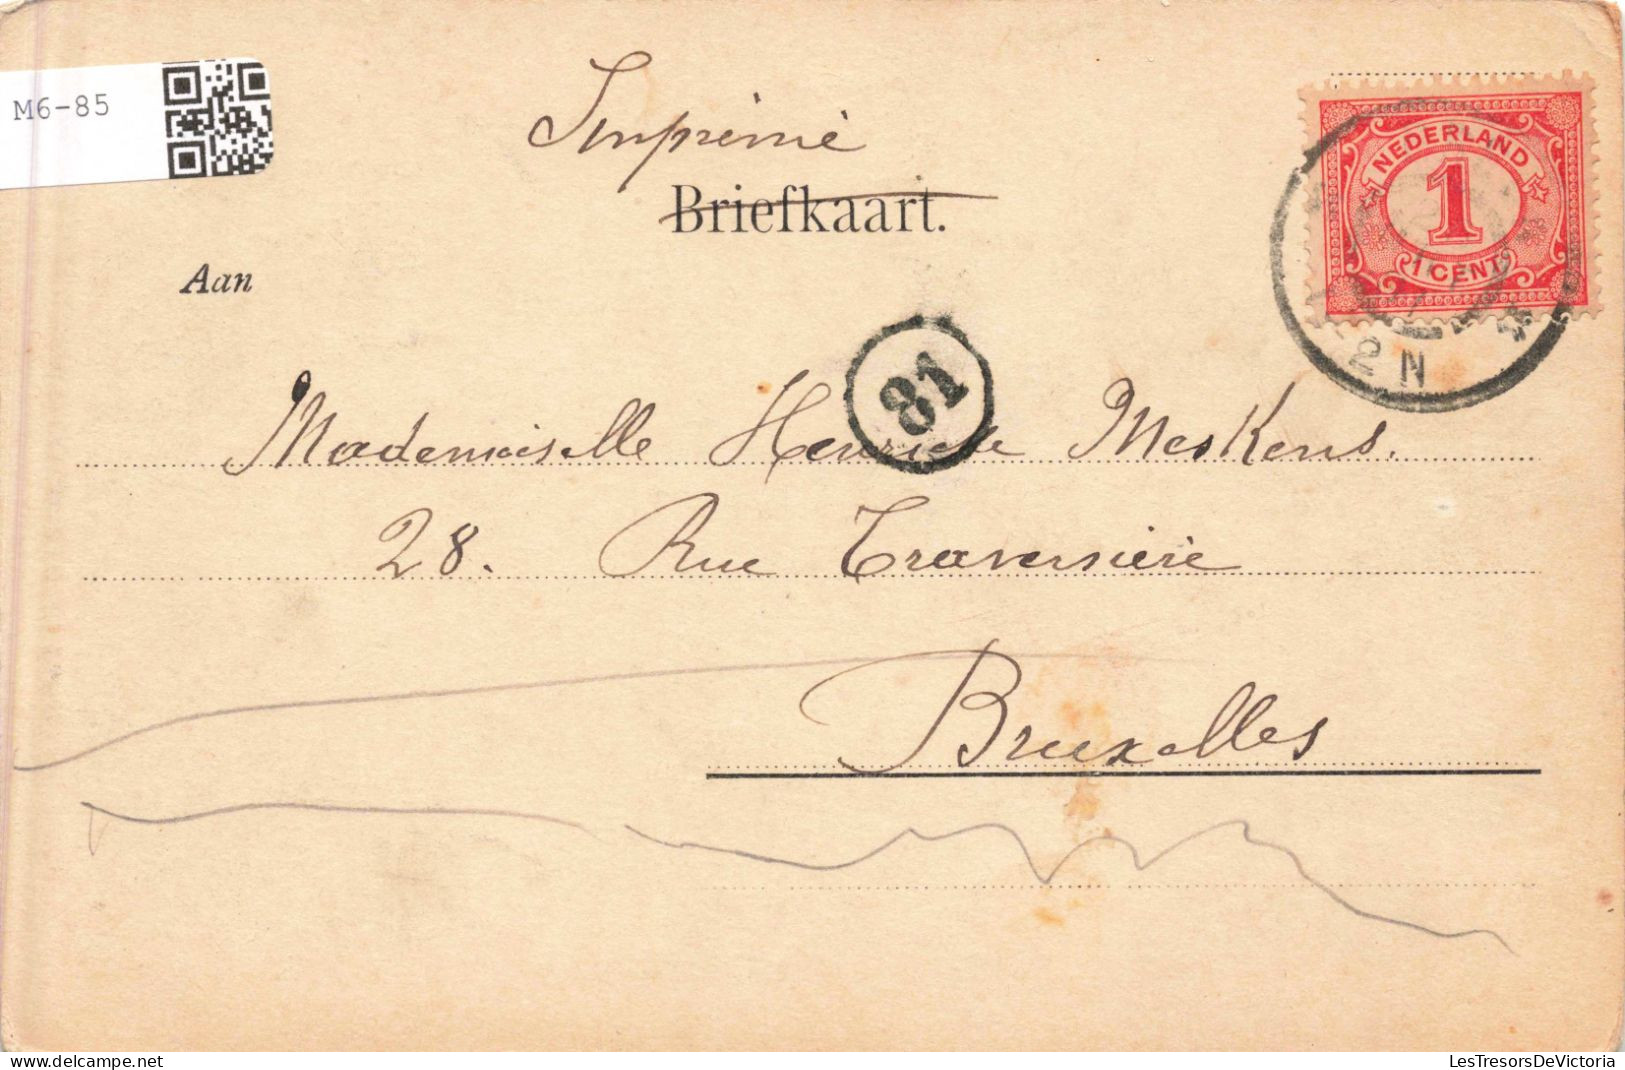 M6-85
Imprimé
Briefkaart.
NEDERLAND
1
1 CENT
2 N
Aan
81
Mademoiselle Henriette Meskens.
28. Rue Traversière
Bruxelles
delcampe.net
LesTresorsDeVictoria